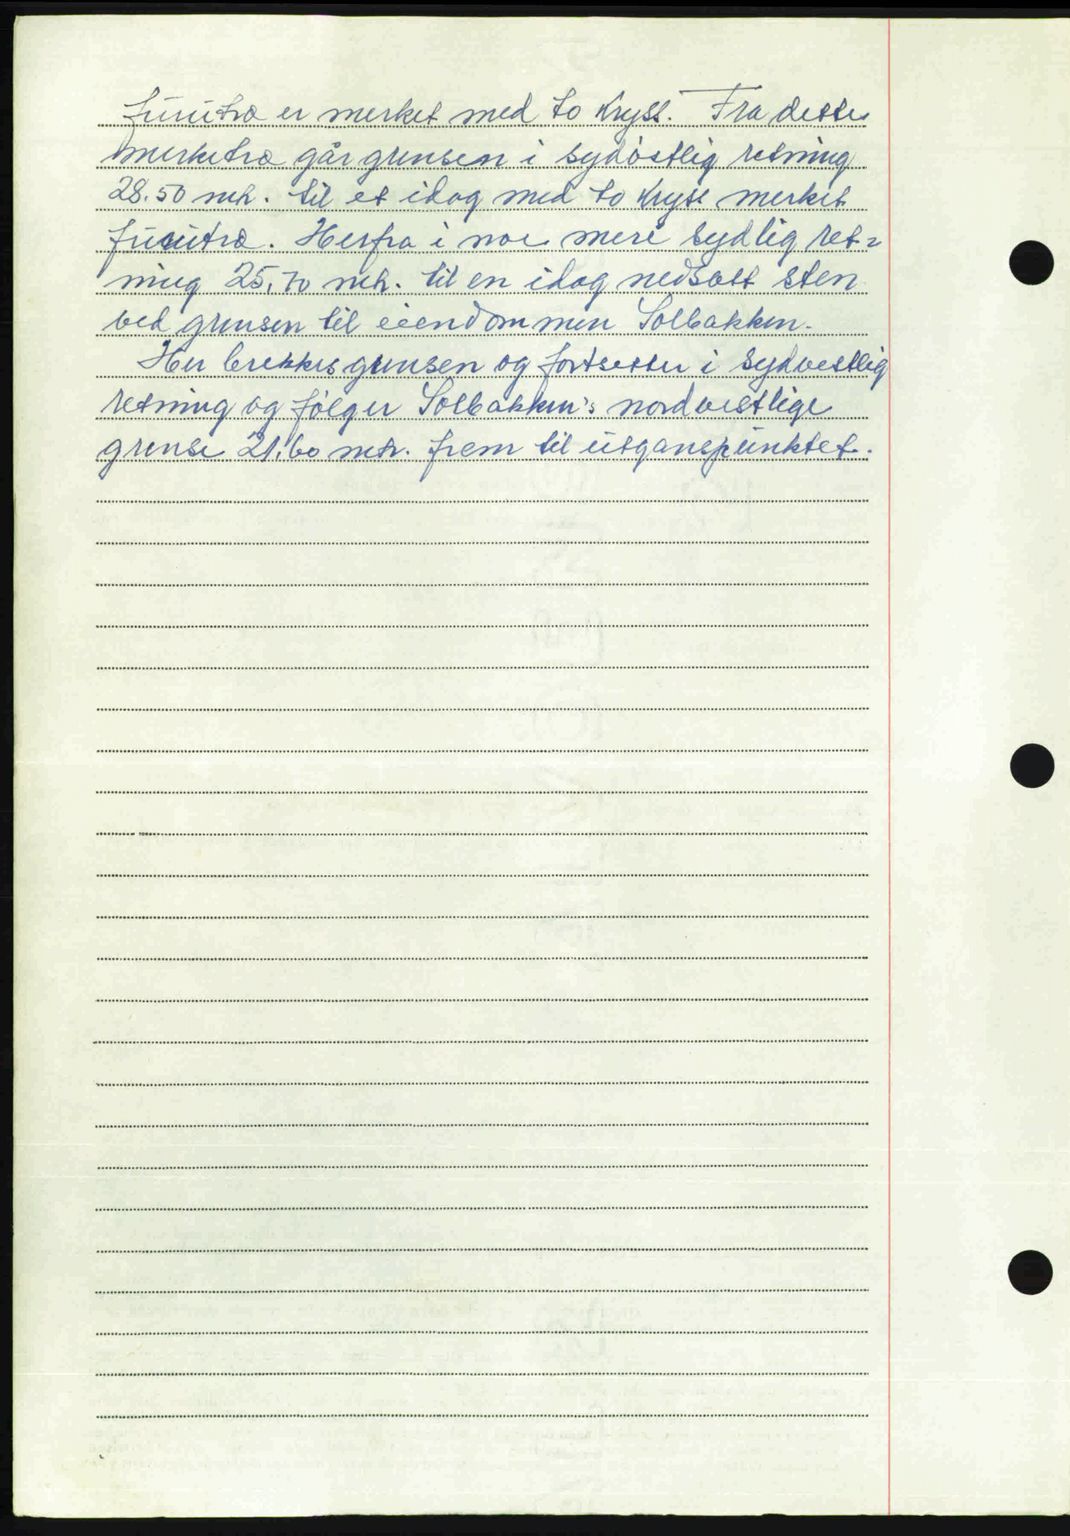 furutre er merket med to Kryss. Fra dette
merketre går grensen i sydöstlig retning
28.50 mtr. til et idag med to Kryss merket
furutre. Herfra i noe mere sydlig ret=
ning 25,70 mtr. til en idag nedsatt sten
ved grensen til eiendommen Solbakken.
Her brekkes grensen og fortsetter i sydvestlig
retning og følger Solbakken's nordvestlige
grense 21,60 mtr. frem til utganspunktet.